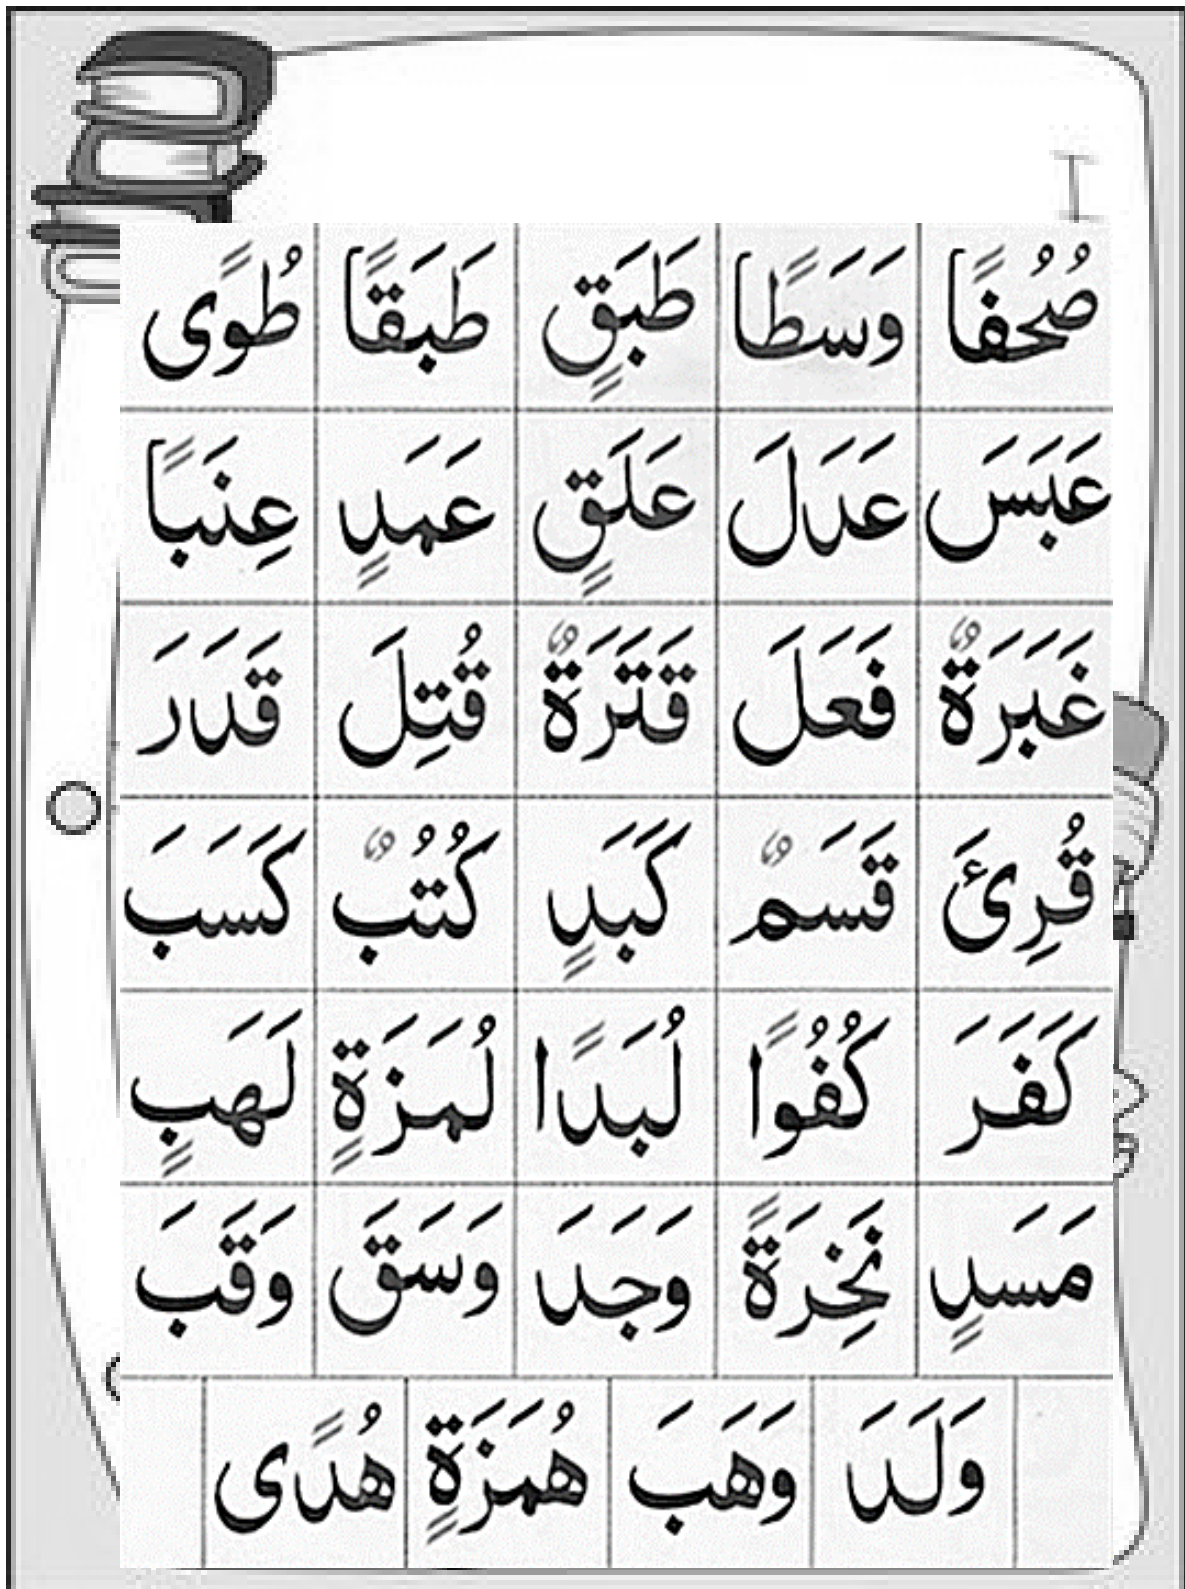 صُحُفًا وَسَطًا طَبَقٍ طَبَقًا طُوًى
عَبَسَ عَدَلَ عَلَقٍ عَمَدٍ عِنَبًا
غَبَرَةٌ فَعَلَ قَتَرَةٌ قُتِلَ قَدَرَ
قُرِئَ قَسَمٌ كَبَدٍ كُتُبٌ كَسَبَ
كَفَرَ كُفُوًا لُبَدًا لُمَزَةٍ لَهَبٍ
مَسَدٍ نَخِرَةً وَجَدَ وَسَقَ وَقَبَ
وَلَدَ وَهَبَ هُمَزَةٍ هُدًى